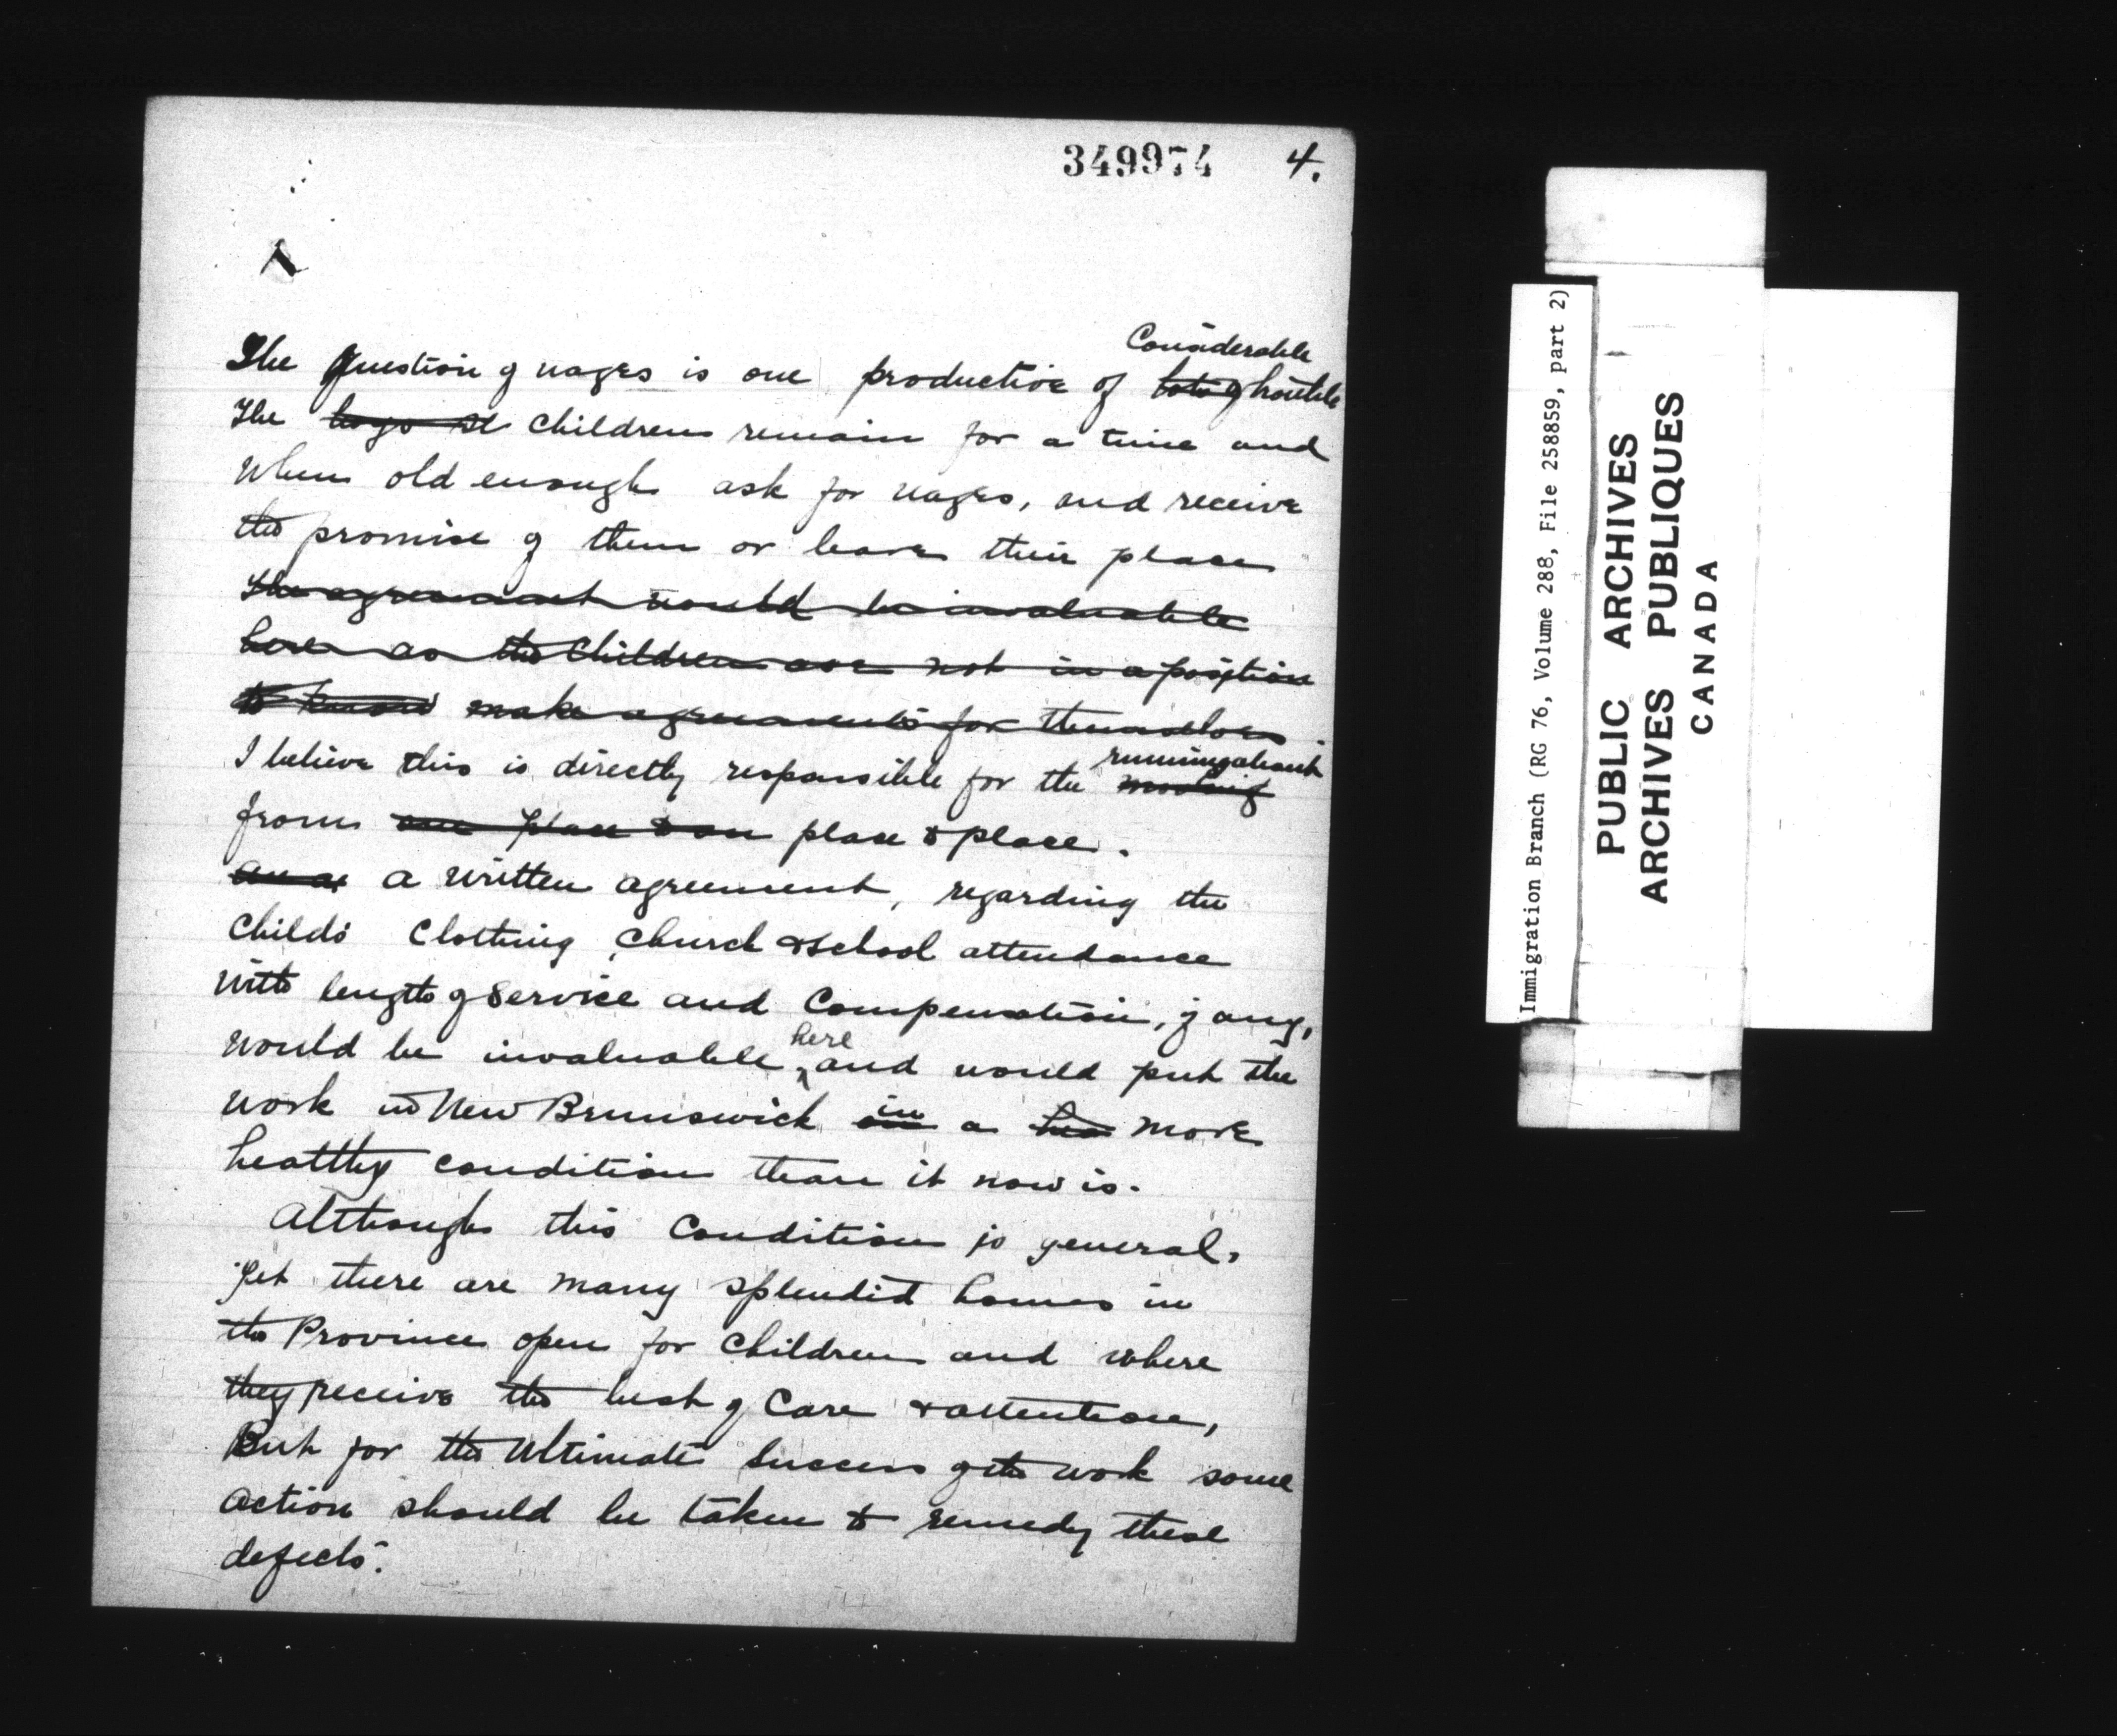 349974 4.
Considerable
The Question of wages is one productive of lots of trouble
The boys st children remain for a time and
When old enough ask for wages, and receive
the promise of them or leave their place
The agreement would be invaluable
here as the children are not in a position
to know make agreements for themselves
running about
I believe this is directly responsible for the moving
from one place to an place to place.
a written agreement, regarding the
Childs Clothing, Church & School attendance
with length of Service and Compensation, if any,
here
would be invaluable, and would put the
in
work in New Brunswick on a more
healthy condition than it now is.
Although this Condition is general,
Yet there are many splendid homes in
the Province open for Children and where
they receive the best of Care & attention,
But for the Ultimate Success of the work some
action should be taken to remedy these
defects.
Immigration Branch (RG 76, Volume 288, File 258859, part 2)
PUBLIC ARCHIVES
ARCHIVES PUBLIQUES
CANADA